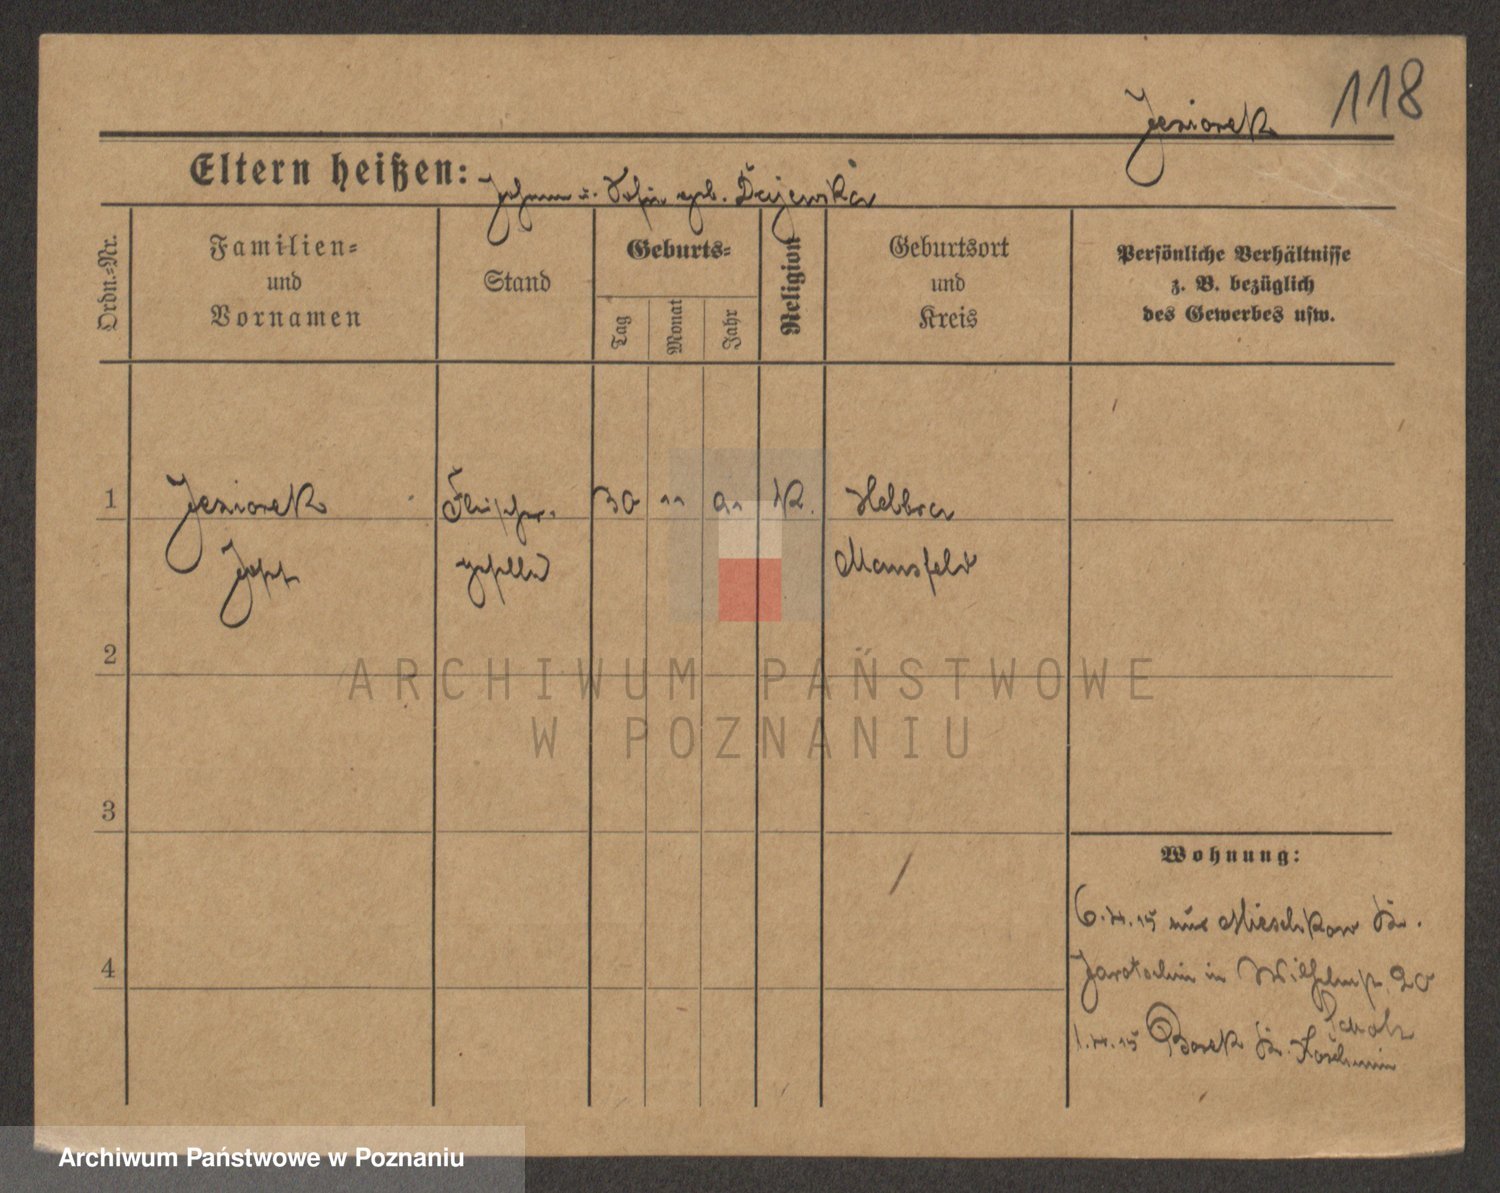 118
Jeziorek
Eltern heißen: Johann u. Sofie geb. Dajewska
Ordn.-Nr.
Familien-
und
Vornamen
Stand
Geburts-
Tag
Monat
Jahr
Religion
Geburtsort
und
Kreis
Persönliche Verhältnisse
z. B. bezüglich
des Gewerbes usw.
1 Jeziorek Fleischer- 30 11 91 K. Helbra
Josef geselle Mansfeld
2
ARCHIWUM PAŃSTWOWE
W POZNANIU
3
Wohnung:
6. 15 aus Mieschkow Kr.
4
Jarotschin in Wilhelmstr. 20
Scholz
1. 15 Borek Kr. Koschmin
Archiwum Państwowe w Poznaniu